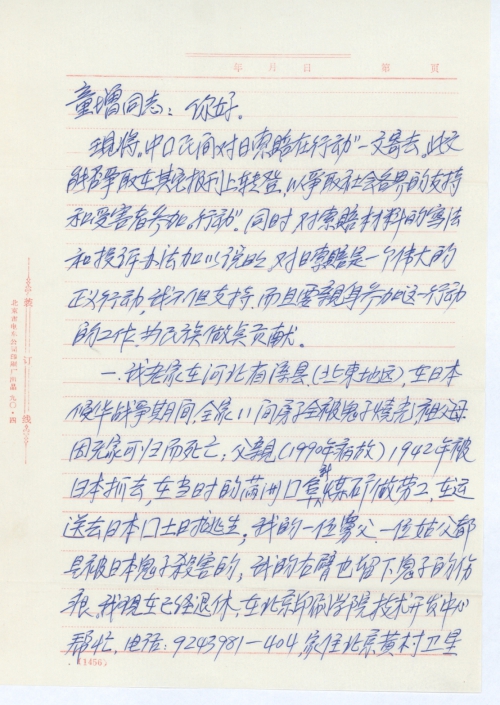 年 月 日 第 页
童增同志：你好。
现将"中口民间对日索赔在行动"一文寄去。此文
能否争取在其它报刊上转登，以争取社会各界的支持
和受害者参加"行动"。同时对索赔材料的写法
和投寄办法加以说明。对日索赔是一个伟大的
正义行动，我不但支持，而且要亲身参加这一行动
的工作，为民族做点贡献。
一.我老家在河北省滦县（北东地区），在日本
侵华战争期间，全家11间房子全被鬼子烧光，祖父母
因无家可归而死亡；父亲（1990年病故）1942年被
日本抓去，在当时的满洲口阜新煤矿做劳工，在运
送去日本口土日抛逃生，我的一位舅父、一位姑父都
是被日本鬼子杀害的，我的右臂也留下鬼子的伤
痕。我现在已经退休，在北京印刷学院技术开发中心
帮忙，电话：9243981—404，家住北京黄村卫星
(1456)
装订线
北京市电车公司印刷厂出品 九〇·四